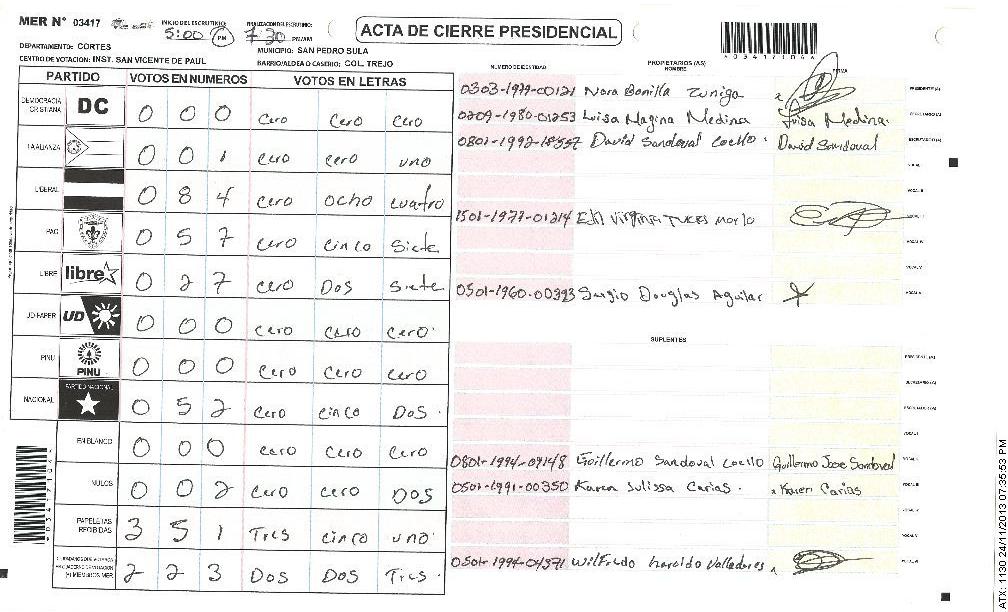 MER N° 03417
INICIO DEL ESCRUTINIO: 5:00 PM
FINALIZACION DEL ESCRUTINIO: 7:30 PM/AM
ACTA DE CIERRE PRESIDENCIAL
0341710
DEPARTAMENTO: CORTES
MUNICIPIO: SAN PEDRO SULA
CENTRO DE VOTACION: INST. SAN VICENTE DE PAUL
BARRIO/ALDEA O CASERIO: COL. TREJO
PARTIDO VOTOS EN NUMEROS VOTOS EN LETRAS
DEMOCRACIA CRISTIANA DC 0 0 0 Cero Cero Cero
LA ALIANZA 0 0 1 Cero cero uno
LIBERAL 0 8 4 Cero ocho cuatro
PAC 0 5 7 Cero cinco Siete
LIBRE libre 0 2 7 Cero Dos Siete
UD FAPER UD 0 0 0 Cero Cero Cero
PINU PINU 0 0 0 Cero Cero Cero
NACIONAL PARTIDO NACIONAL 0 5 2 Cero cinco Dos
EN BLANCO 0 0 0 Cero Cero Cero
NULOS 0 0 2 Cero cero Dos
PAPELETAS RECIBIDAS 3 5 1 Tres cinco uno
2 2 3 Dos Dos Tres
NUMERO DE IDENTIDAD PROPIETARIOS (AS) NOMBRE FIRMA
0303-1979-00121 Nora Bonilla Zuniga PRESIDENTE(A)
0209-1980-01253 Luisa Magina Medina Luisa Medina SECRETARIO(A)
0801-1992-18557 David Sandoval Coello David Sandoval ESCRUTADOR(A)
VOCAL I
VOCAL II
1501-1977-01214 Edil Virginia
VOCAL IV
VOCAL V
0501-1960-00393 Sergio Douglas Aguilar
SUPLENTES
PRESIDENTE(A)
SECRETARIO(A)
ESCRUTADOR(A)
VOCAL I
0801-1994-09148 Guillermo Sandoval Coello Guillermo Jose Sandoval
0501-1991-00350 Karen Julissa Carias Karen Carias
0501-1994-04371 Wilfredo Haroldo Valladares
ATX: 1130 24/11/2013 07:35:53 PM